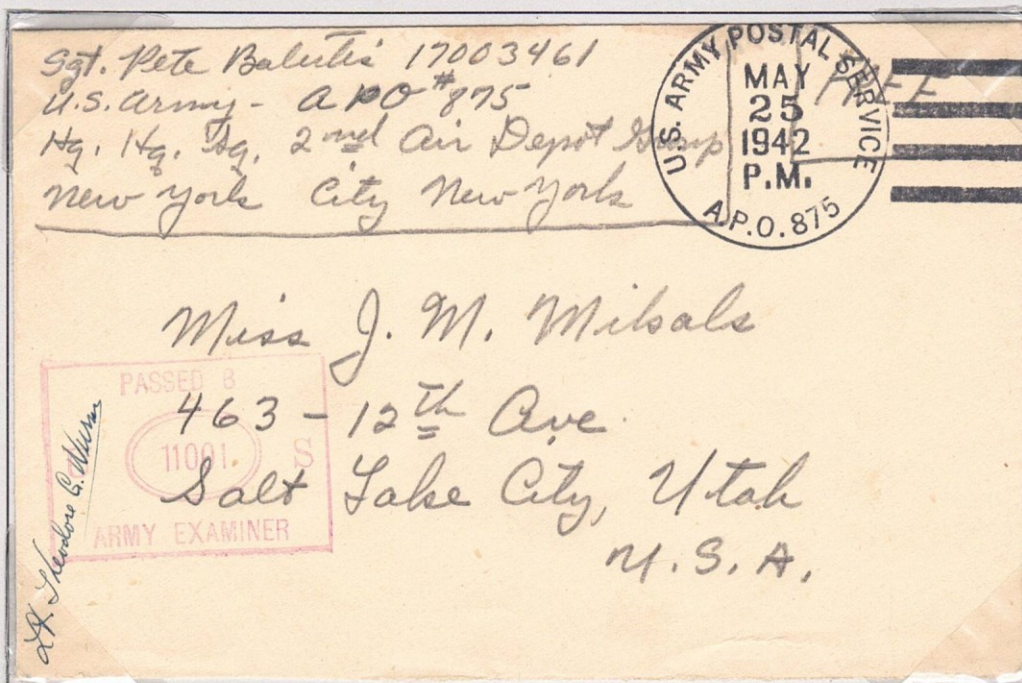 Sgt. Pete Balutis 17003461
U.S. Army - APO #875
Hq. Hq. Sq. 2nd Air Depot Group
New York City New York
Free
U.S. ARMY POSTAL SERVICE
MAY
25
1942
P.M.
A.P.O. 875
Miss J. M. Milsals
463 - 12th Ave.
Salt Lake City, Utah
U.S.A.
PASSED B
11001
S
ARMY EXAMINER
Lt. Theodore G.